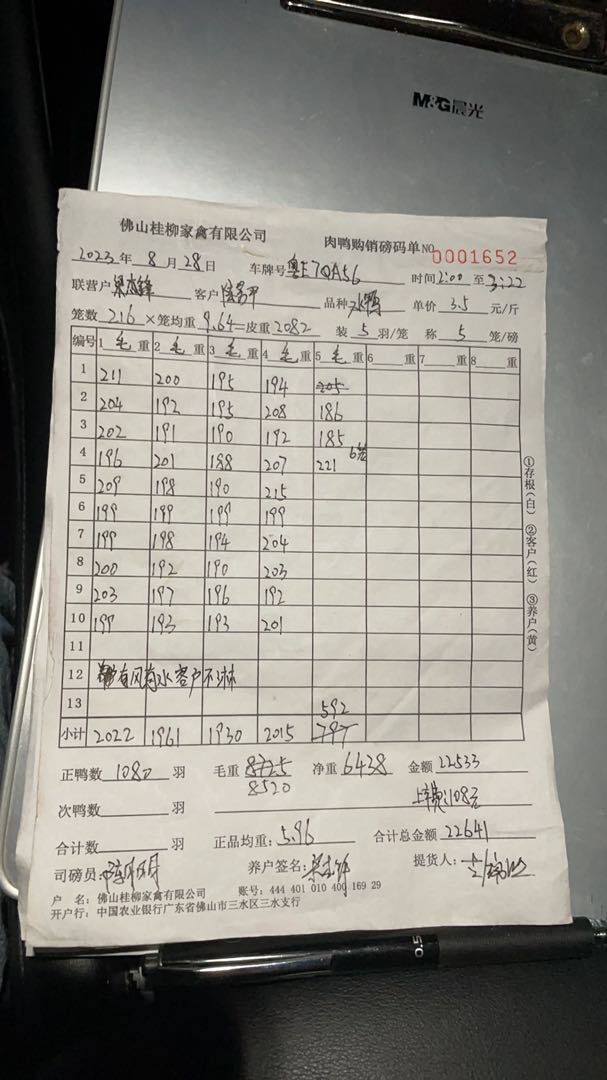 M&G晨光
佛山桂柳家禽有限公司 肉鸭购销磅码单 NO 0001652
2023年 8月 28日 车牌号 粤E7QA56 时间 2:00 至 3:22
联营户 客户 品种 水鸭 单价 3.5 元/斤
笼数 216 ×笼均重 9.64 =皮重 2082 装 5 羽/笼 称 5 笼/磅
编号 1 毛 重 2 毛 重 3 毛 重 4 毛 重 5 毛 重 6 重 7 重 8 重
1 211 200 195 194 205
2 204 192 195 208 186
3 202 191 190 192 185
4 196 201 188 207 221 6笼
5 209 198 190 215
6 199 199 199 199
7 199 198 194 204
8 200 192 190 203
9 203 197 196 192
10 199 193 193 201
11
12 有风有水客户不淋
13 592
小计 2022 1961 1930 2015 797
正鸭数 1080 羽 毛重 8725 净重 6438 金额 22533
8520
次鸭数 羽 108元
合计数 羽 正品均重: 5.96 合计总金额 22641
司磅员: 养户签名: 提货人:
户 名: 佛山桂柳家禽有限公司 账号: 444 401 010 400 169 29
开户行: 中国农业银行广东省佛山市三水区三水支行
①存根(白) ②客户(红) ③养户(黄)
0.5